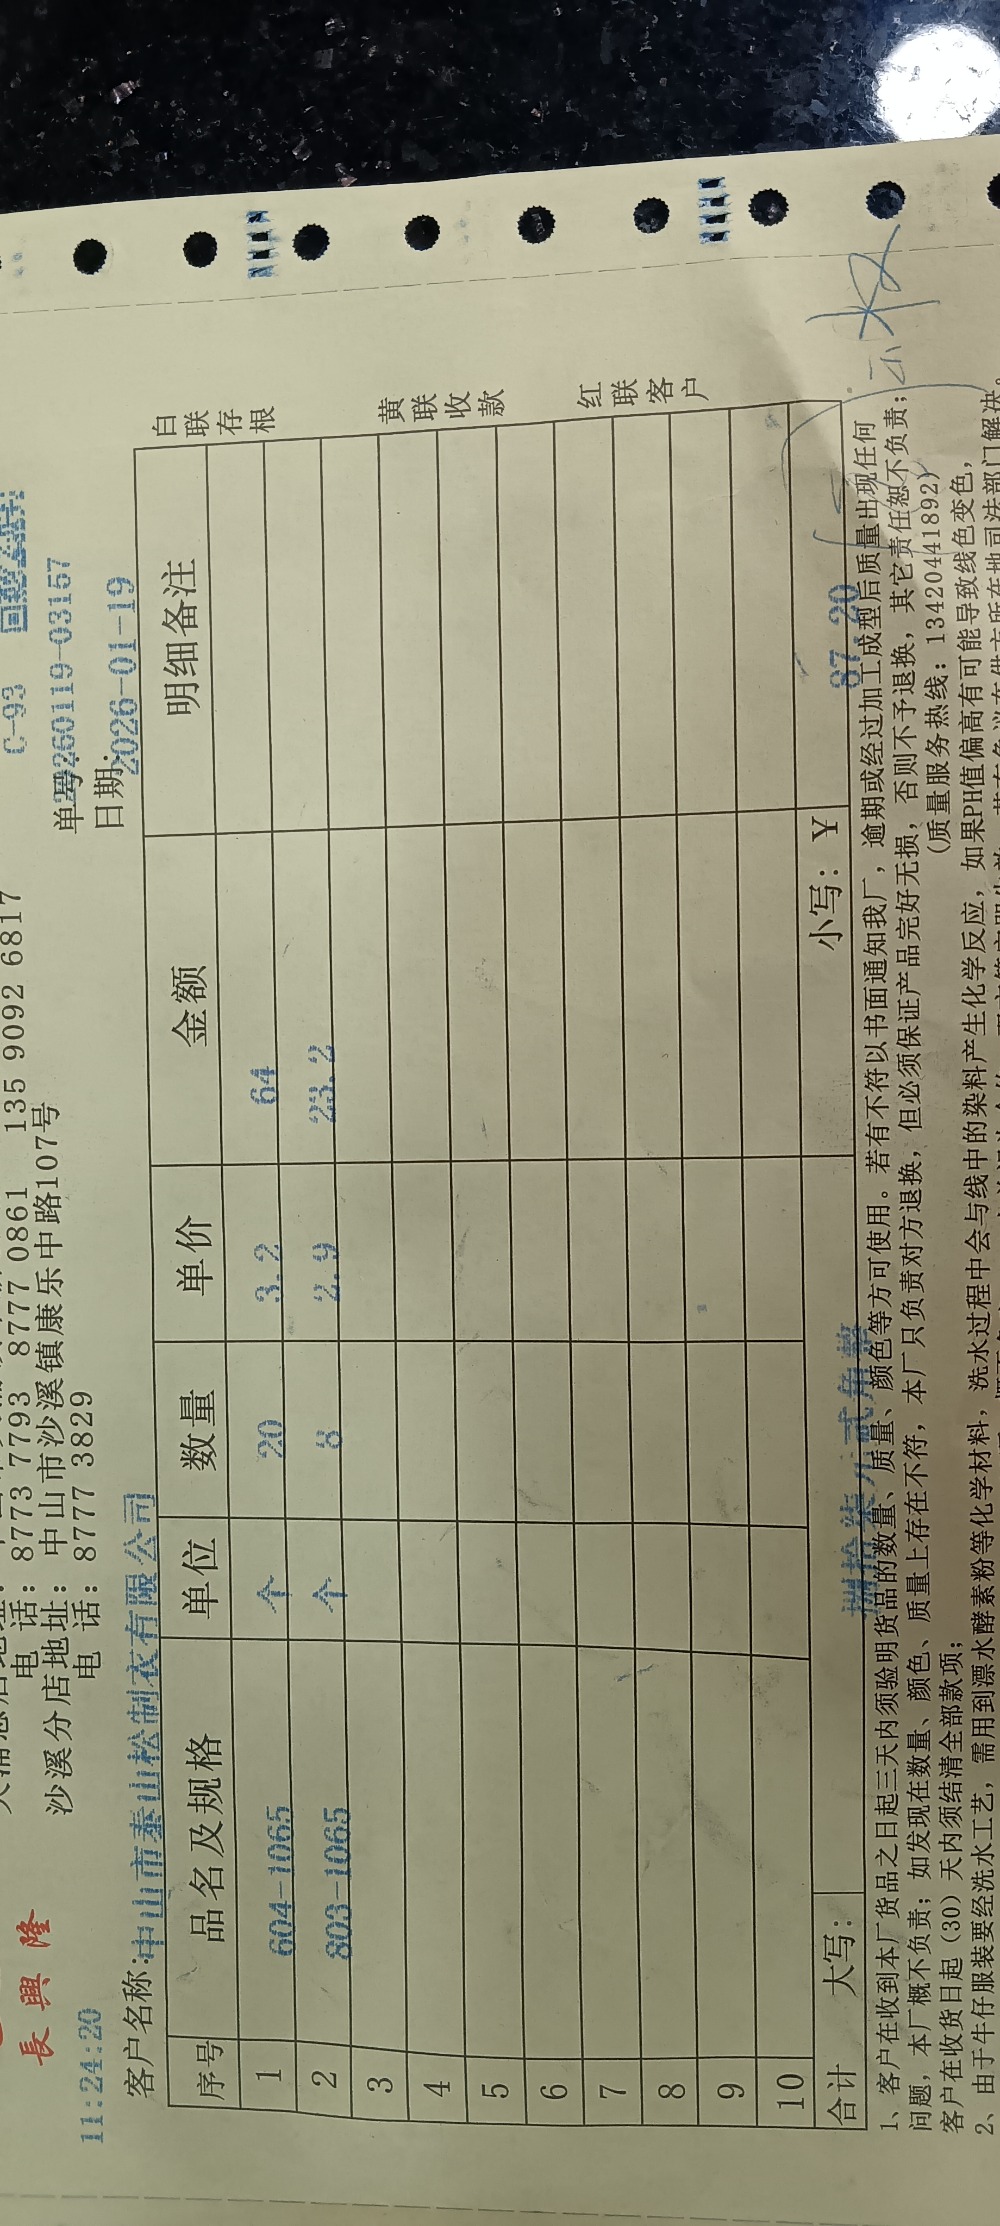 長興隆
11:24:20
C-93
电 话：8773 7793 8777 0861 135 9092 6817
沙溪分店地址：中山市沙溪镇康乐中路107号
单号：260119-03157
电 话：8777 3829
日期：2026-01-19
客户名称：中山市泰山松制衣有限公司
序号 品名及规格 单位 数量 单价 金额 明细备注
1 604-1065 个 20 3.2 64
2 803-1065 个 8 2.9 23.2
3
4
5
6
7
8
9
10
合计 大写：捌拾柒元贰角整 小写：￥ 87.20
白联存根
黄联收款
红联客户
1、客户在收到本厂货品之日起三天内须验明货品的数量、质量、颜色等方可使用。若有不符以书面通知我厂，逾期或经过加工成型后质量出现任何
问题，本厂概不负责；如发现在数量、颜色、质量上存在不符，本厂只负责对方退换，但必须保证产品完好无损，否则不予退换，其它责任恕不负责；
客户在收货日起（30）天内须结清全部款项； （质量服务热线：13420441892）
2、由于牛仔服装要经洗水工艺，需用到漂水酵素粉等化学材料，洗水过程中会与线中的染料产生化学反应，如果PH值偏高有可能导致线色变色，